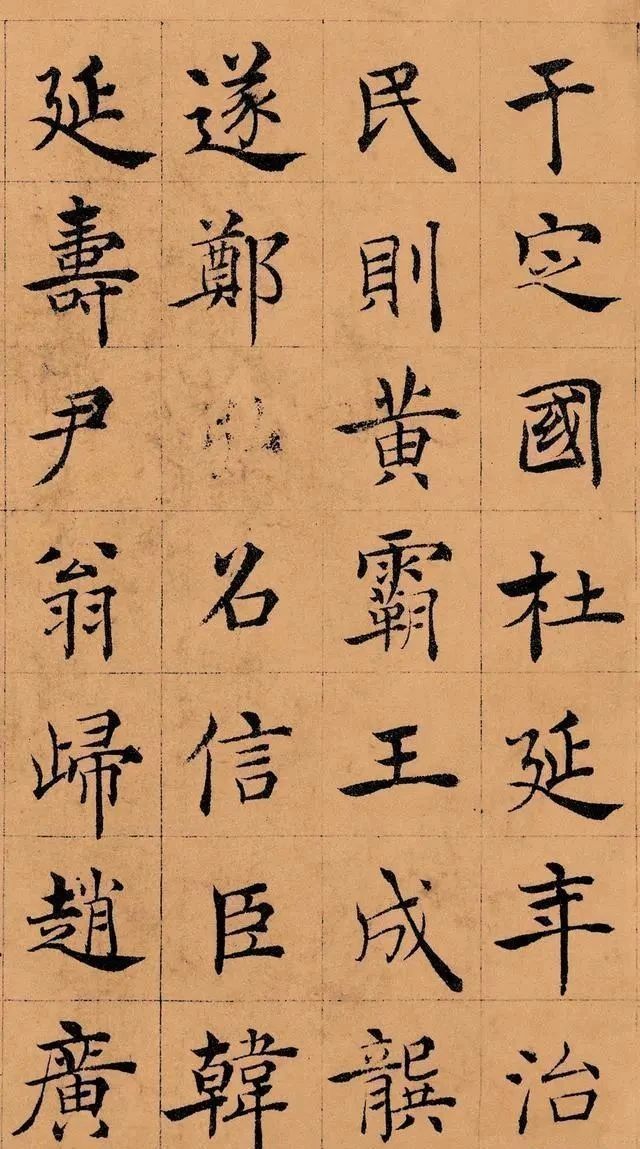 于定國杜延年治
民則黃霸王成龔
遂鄭召信臣韓
延壽尹翁歸趙廣